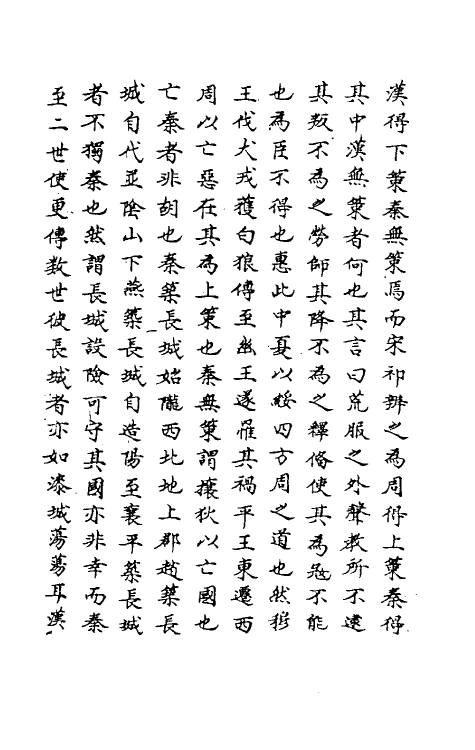 漢得下策秦無策焉而宋祁辨之為周得上策秦得
其中漢無策者何也其言曰荒服之外聲教所不逮
其叛不為之勞師其降不為之釋備使其為寇不能
也為臣不得也惠此中夏以綏四方周之道也然穆
王伐犬戎獲白狼傳至幽王遂罹其禍平王東遷西
周以亡惡在其為上策也秦無策謂攘狄以亡國也
亡秦者非胡也秦築長城始隴西北地上郡趙築長
城自代並陰山下燕築長城自造陽至襄平築長城
者不獨秦也然謂長城設險可守其國亦非幸而秦
至二世使更傳数世彼長城者亦如漆城蕩蕩耳漢